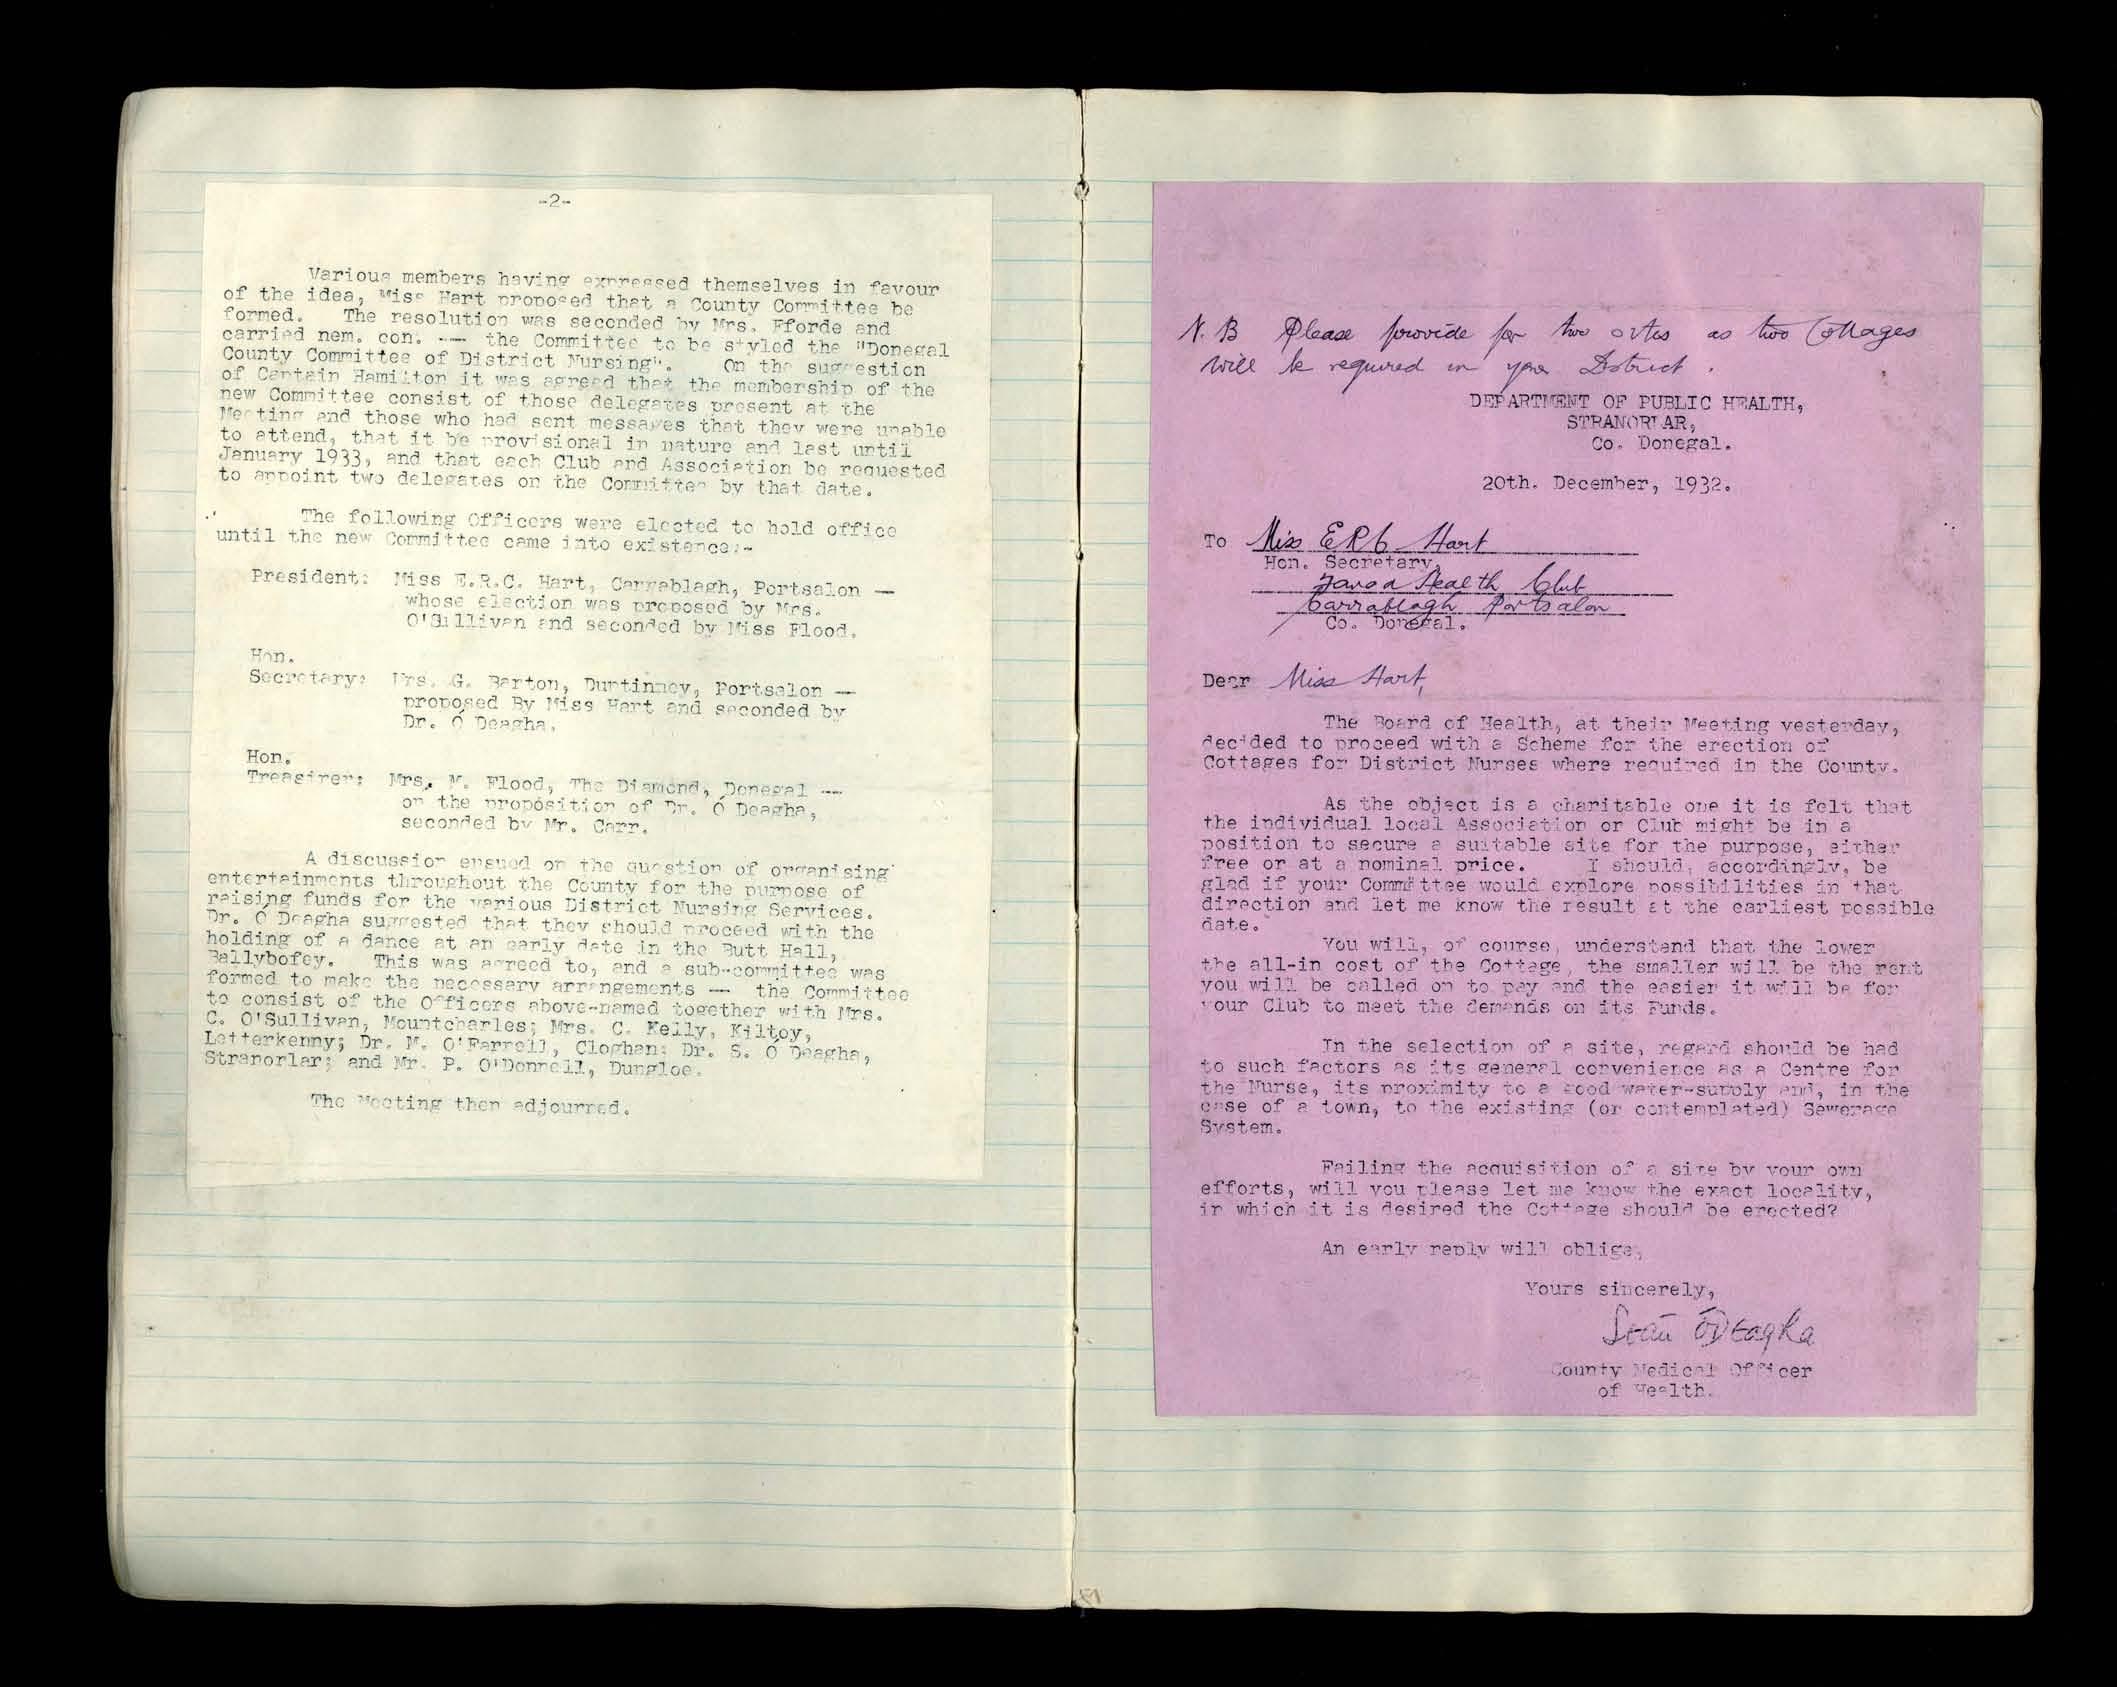 -2-
Various members having expressed themselves in favour
of the idea, Miss Hart proposed that a County Committee be
formed. The resolution was seconded by Mrs. Fforde and
carried nem. con. -- the Committee to be styled the "Donegal
County Committee of District Nursing". On the suggestion
of Captain Hamilton it was agreed that the membership of the
new Committee consist of those delegates present at the
Meeting and those who had sent messages that they were unable
to attend, that it be provisional in nature and last until
January 1933, and that each Club and Association be requested
to appoint two delegates on the Committee by that date.
The following Officers were elected to hold office
until the new Committee came into existence:-
President: Miss E.R.C. Hart, Carrablagh, Portsalon --
whose election was proposed by Mrs.
O'Sullivan and seconded by Miss Flood.
Hon.
Secretary: Mrs. G. Barton, Duntinney, Portsalon --
proposed By Miss Hart and seconded by
Dr. Ó Deagha.
Hon.
Treasirer: Mrs. M. Flood, The Diamond, Donegal --
on the proposition of Dr. Ó Deagha,
seconded by Mr. Carr.
A discussion ensued on the question of organising
entertainments throughout the County for the purpose of
raising funds for the various District Nursing Services.
Dr. Ó Deagha suggested that they should proceed with the
holding of a dance at an early date in the Butt Hall,
Ballybofey. This was agreed to, and a sub-committee was
formed to make the necessary arrangements -- the Committee
to consist of the Officers above-named together with Mrs.
C. O'Sullivan, Mountcharles; Mrs. C. Kelly, Kiltoy,
Letterkenny; Dr. M. O'Farrell, Cloghan; Dr. S. Ó Deagha,
Stranorlar; and Mr. P. O'Donnell, Dungloe.
The Meeting then adjourned.
N.B Please provide for two sites as two Cottages
will be required in your District.
DEPARTMENT OF PUBLIC HEALTH,
STRANORLAR,
Co. Donegal.
20th. December, 1932.
To Miss ERC Hart
Hon. Secretary,
Fanad Health Club
Carrablagh Portsalon
Co. Donegal.
Dear Miss Hart,
The Board of Health, at their Meeting yesterday,
decided to proceed with a Scheme for the erection of
Cottages for District Nurses where required in the County.
As the object is a charitable one it is felt that
the individual local Association or Club might be in a
position to secure a suitable site for the purpose, either
free or at a nominal price. I should, accordingly, be
glad if your Committee would explore possibilities in that
direction and let me know the result at the earliest possible
date.
You will, of course, understand that the lower
the all-in cost of the Cottage, the smaller will be the rent
you will be called on to pay and the easier it will be for
your Club to meet the demands on its Funds.
In the selection of a site, regard should be had
to such factors as its general convenience as a Centre for
the Nurse, its proximity to a good water-supply and, in the
case of a town, to the existing (or contemplated) Sewerage
System.
Failing the acquisition of a site by your own
efforts, will you please let me know the exact locality,
in which it is desired the Cottage should be erected?
An early reply will oblige,
Yours sincerely,
Seán Ó Deagha
County Medical Officer
of Health.